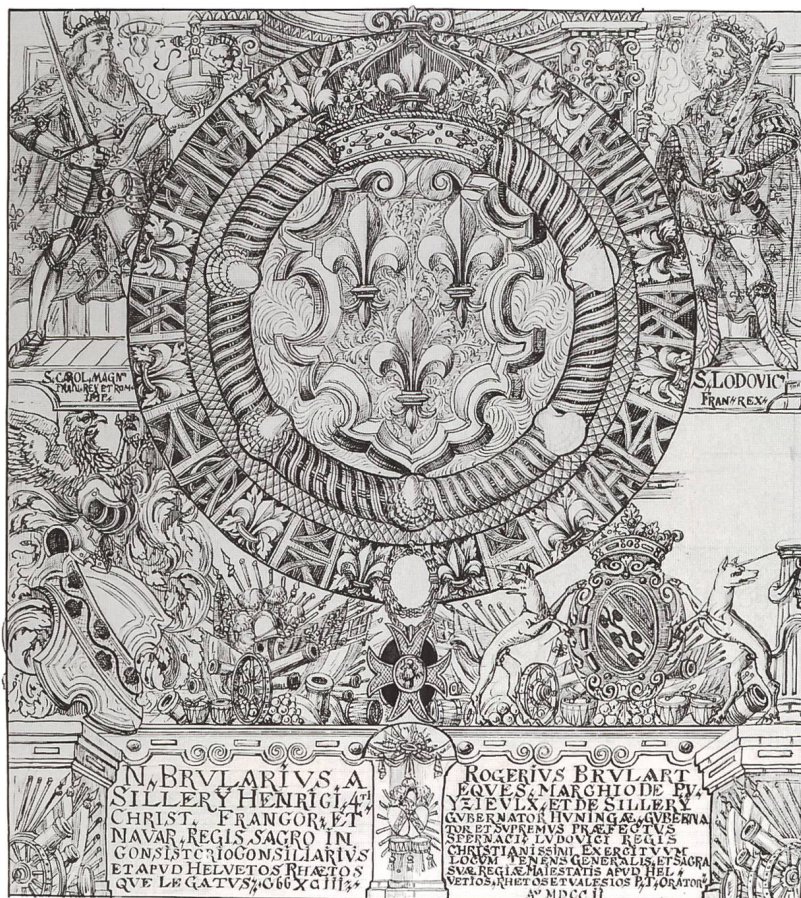 S. CAROL. MAGNꝰ
FRAN. REX ET ROM.
IMP.
S. LODOVIC
FRAN. REX
N. BRVLARIVS. A
SILLERY HENRICI. 4ti
CHRIST. FRANCOR. ET
NAVAR. REGIS. SACRO IN
CONSISTORIO CONSILIARIVS
ET APVD HELVETOS RHÆTOS
QVE LEGATVS
ROGERIVS BRVLART
EQVES. MARCHIO DE PV
YZIEVLX. ET DE SILLERY
GVBERNATOR HVNINGÆ. GVBERNA
TOR ET SVPREMVS PRÆFECTVS
SPERNACI. LVDOVICI REGIS
CHRISTIANISIMI EXERCITVVM
LOCVM TENENS GENERALIS. ET SACRA
SVÆ REGIÆ MAIESTATIS APVD HEL
VETIOS. RHETOS ET VALESIOS P. T. ORATOR
Aº MDCCII